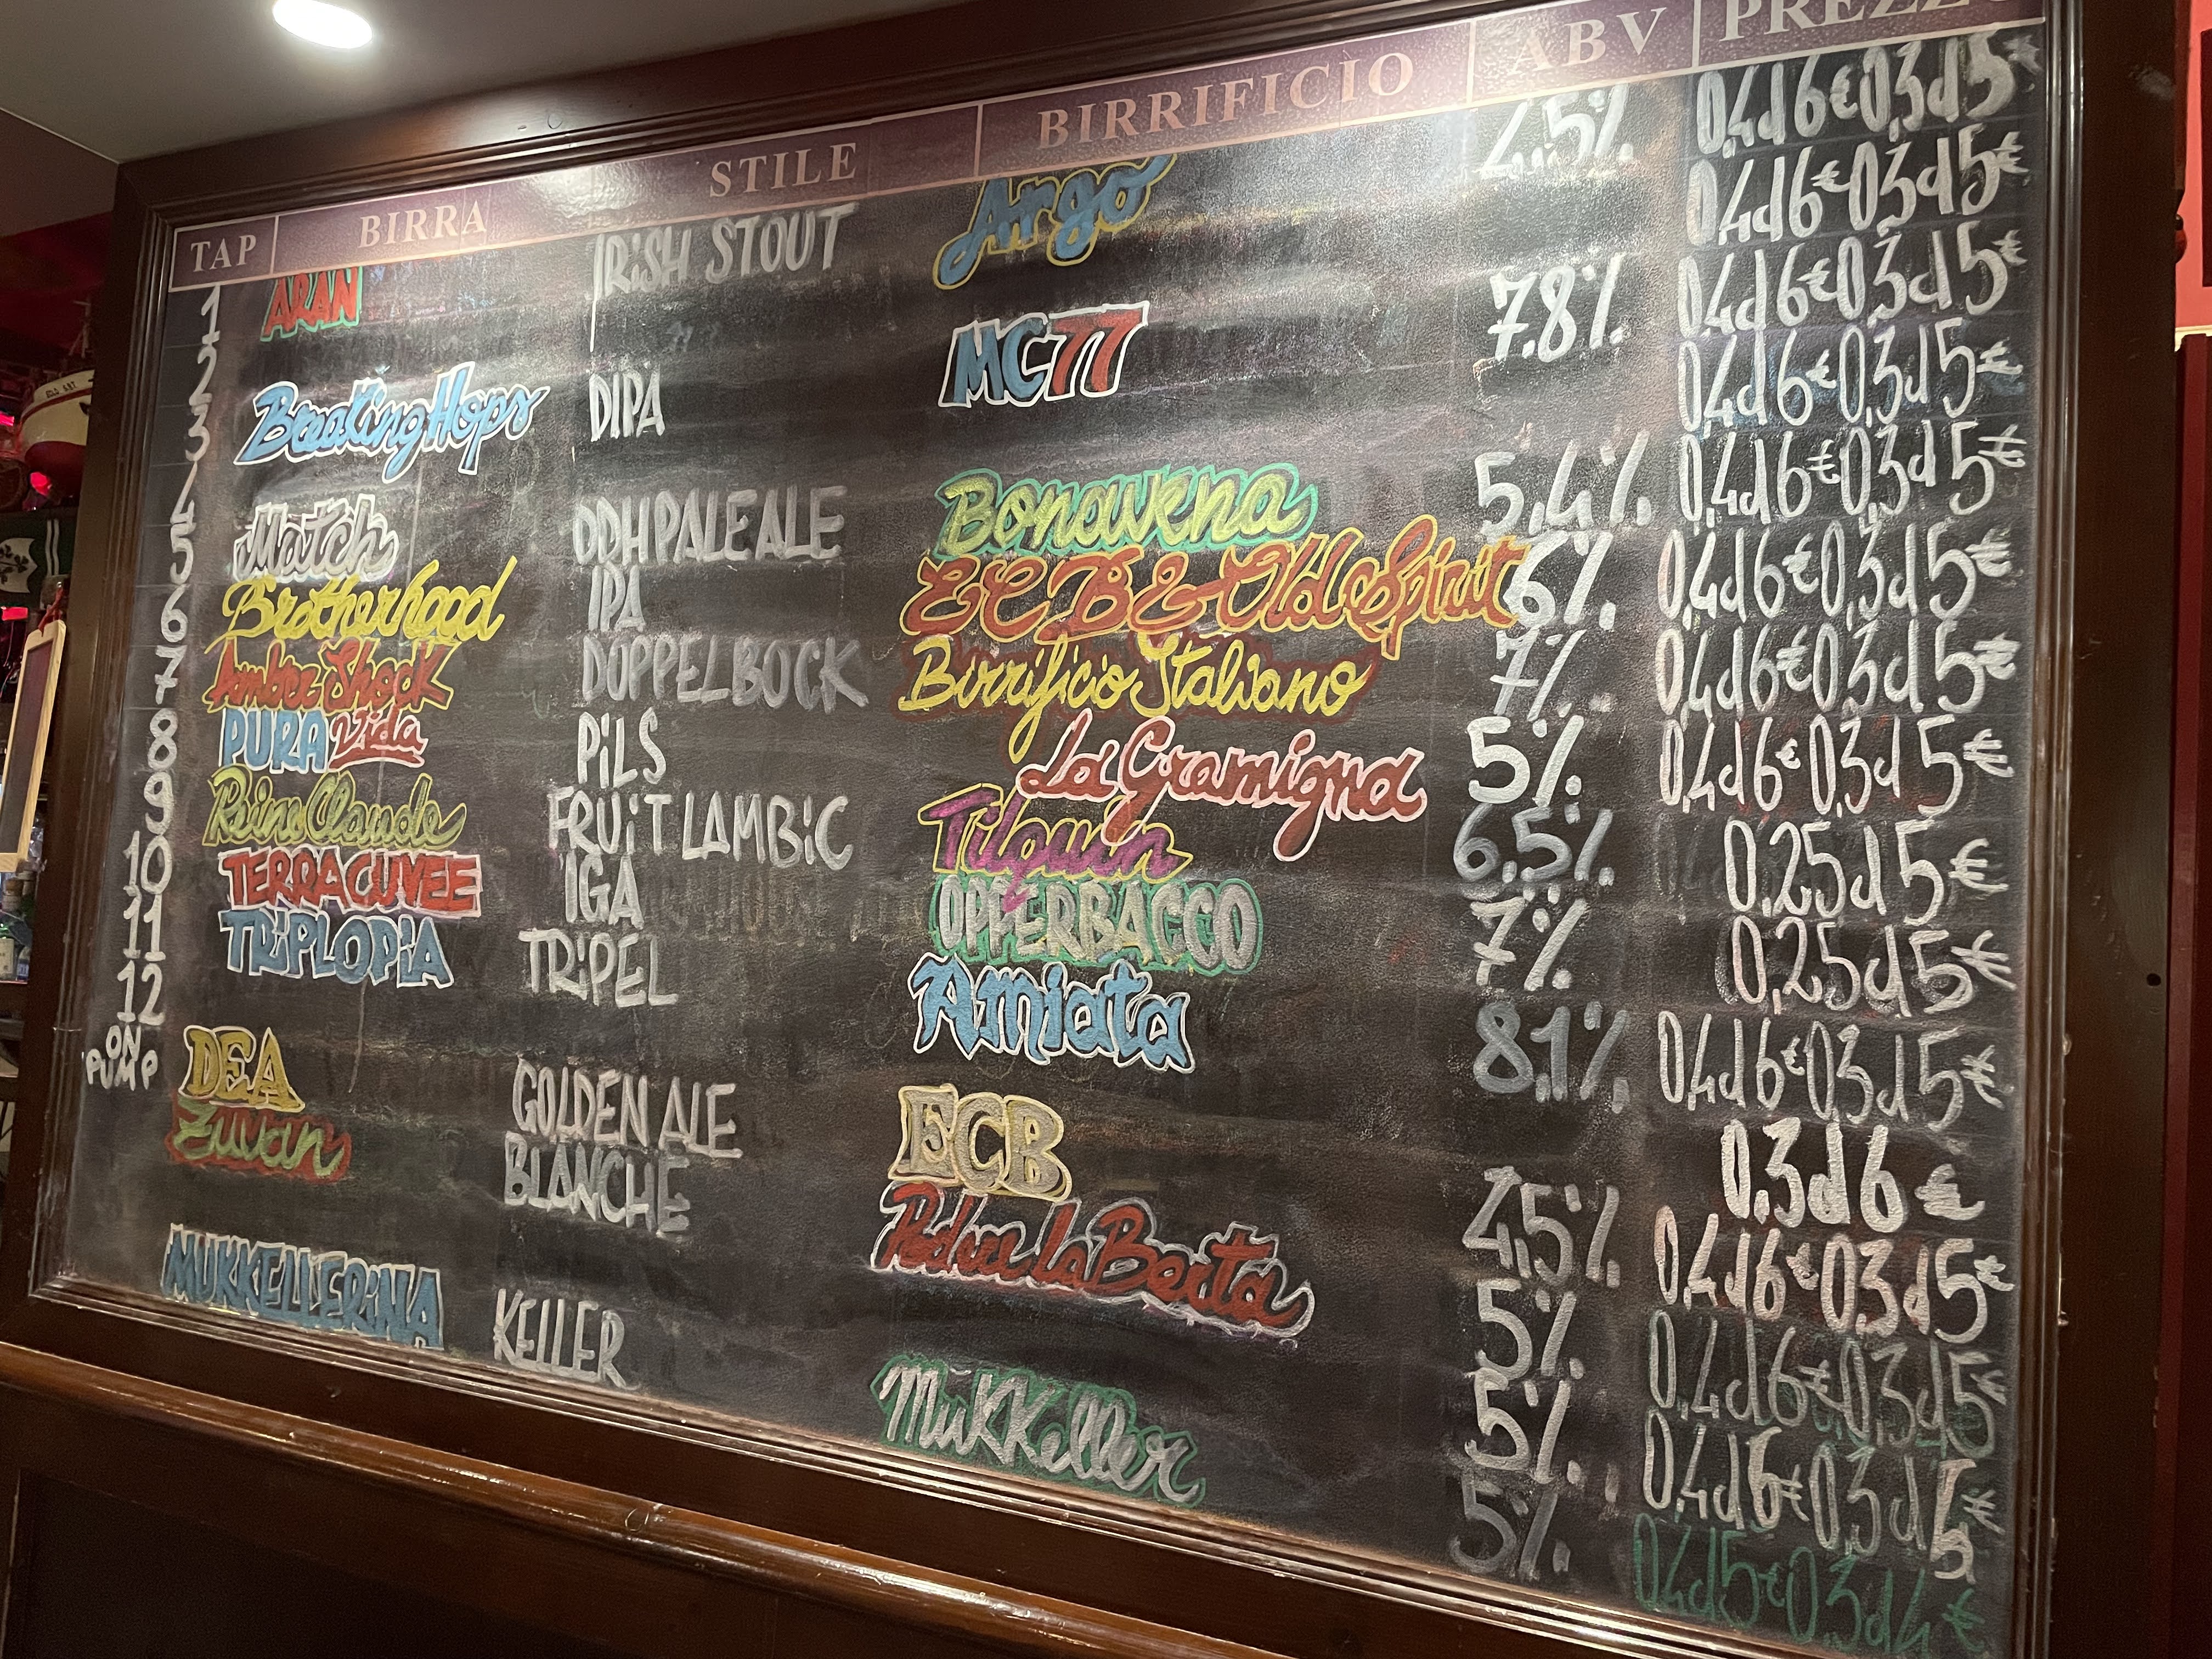 TAP BIRRA STILE BIRRIFICIO ABV PREZZO
1 ARAN IRISH STOUT Argo 4.5% 0,4d 6€ 0,3d 5€
2 0,4d 6€ 0,3d 5€
3 Breaking Hops DIPA MC77 7.8% 0,4d 6€ 0,3d 5€
4 0,4d 6€ 0,3d 5€
5 Match DDH PALE ALE Bonavena 5.4% 0,4d 6€ 0,3d 5€
6 Brotherhood IPA ECB & Old Spirit 6% 0,4d 6€ 0,3d 5€
7 Amber Shock DOPPELBOCK Birrificio Italiano 7% 0,4d 6€ 0,3d 5€
8 PURA Vida PILS La Gramigna 5% 0,4d 6€ 0,3d 5€
9 Reine Claude FRUIT LAMBIC Tilquin 6.5% 0,25d 5€
10 TERRACUVEE IGA OPPERBACCO 7% 0,25d 5€
11 TRIPLOPIA TRIPEL Amiata 8.1% 0,4d 6€ 0,3d 5€
12 0.3d 6€
ON PUMP DEA GOLDEN ALE ECB 4,5% 0,4d 6€ 0,3d 5€
Zuvan BLANCHE Podere La Berta 5% 0,4d 6€ 0,3d 5€
5% 0,4d 6€ 0,3d 5€
MUKKELLERINA KELLER MukKeller 5% 0,4d 5€ 0,3d 4€